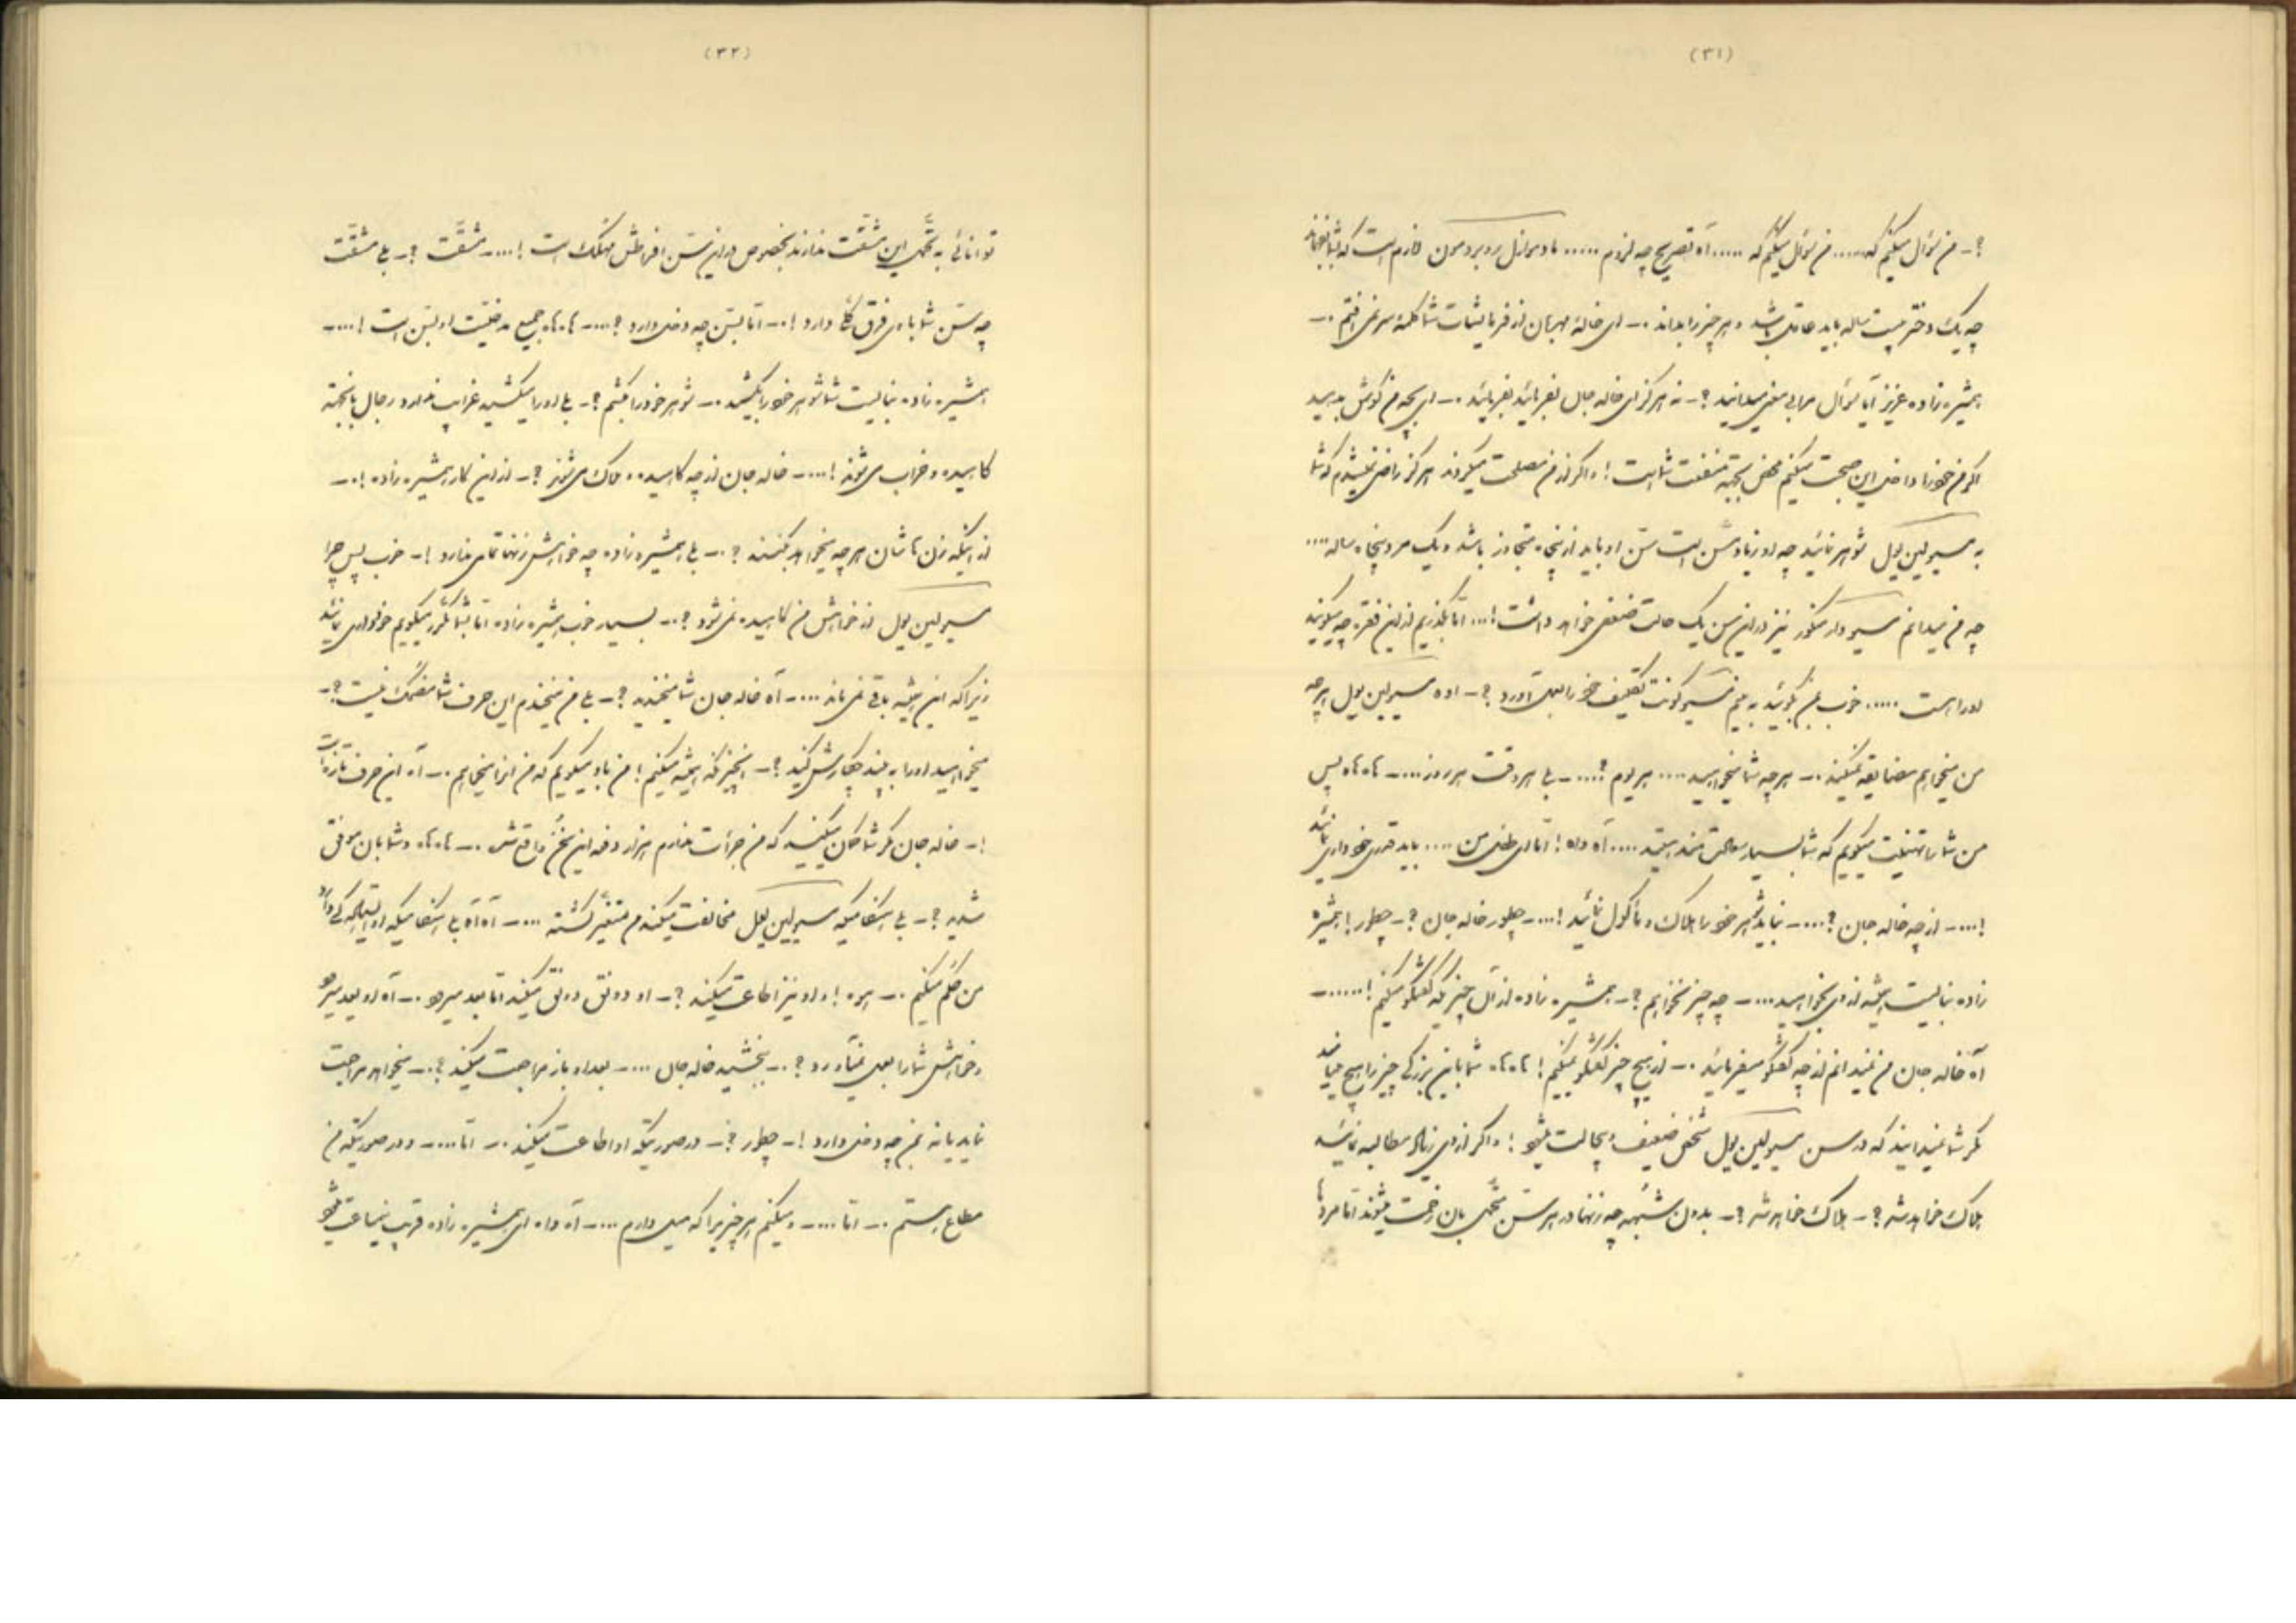 (۳۱)
؟ – من سؤال میکنم که ..... من سؤال میکنم که ..... آه تصریح چه لزوم ..... مادموازل رو برو مون لازم است که بشما بفهماند
چه یک دختر بیست ساله باید عاقل باشد و هر چیز را بداند .– ای خالهٔ مهربان از فرمایشات شما کلمهٔ سر نمی افتم .–
همشیره زاده عزیز آیا سؤال مرا بی معنی میدانید ؟ – نه هرگز ای خاله جان بفرمائید بفرمائید .– ای بچه من گوش بدهید
اگر من خود را داخل این صحبت میکنم محض بجهة منفعت شما است ! و اگر از من مصلحت میکردند هرگز راضی نمیشدم که شما
به مسیو لین یول شوهر نمائید چه او زیاد مسن است سن او باید از پنجاه متجاوز باشد و یک مرد پنجاه ساله ....
چه من میدانم مسیو دو مذکور نیز در این سن یک حالت ضعفی خواهد داشت ! ... اما بگذریم از این فقره چه میگویند
او را هست ..... خوب بمن بگوئید به بینم مسیو گونت تکلیف خود را بعمل آورد ؟ – اوه مسیو لین یول هر چه
من میخواهم مضایقه نمیکند .– هر چه شما میخواهید .... هر یوم ؟ .... – بلی هر وقت هر روز .... – ها ها ها پس
من شما را تهنیت میگویم که شما بسیار سعادتمند هستید .... آه واه ! اما ای طفل من .... باید قدری خودداری نمائید
! .... – از چه خاله جان ؟ .... – نباید شوهر خود را هلاک و مأکول نمائید ! .... – چطور خاله جان ؟ – چطور ! همشیره
زاده نبایست همیشه از وی بخواهید .... – چه چیز نخواهم ؟ – همشیره زاده از آن چیزیکه گفتگو میکنیم ! ...... –
آه خاله جان من نمیدانم از چه گفتگو میفرمائید .– از هیچ چیز گفتگو نمیکنیم ! ها ها ها شما باین بزرگی چیز را هیچ مینامید
مگر شما نمیدانید که در سن مسیو لین یول شخص ضعیف و بیحالت میشود ! و اگر از وی زیاد مطالبه نمائید
هلاک خواهد شد ؟ – هلاک خواهد شد ؟ – بدون شبهه چه زنها در هر سن متحمل بان زحمت میشوند اما مردها
(۳۲)
توانائی به تحمل این مشقت ندارند بخصوص در این سن افراطش مهلک است ! .... – مشقت ؟ – بلی مشقت
چه سن شما با وی فرق کلی دارد ! .– اما بسن چه دخلی دارد ؟ .... – ها ها ها جمیع مدخلیت او بسن است ! .... –
همشیره زاده نبایست شما شوهر خود را بکشید .– شوهر خود را بکشم ؟ – بلی او را میکشید غرابت ندارد رجال باینجهته
کاهیده و خراب می شوند ! .... – خاله جان از چه کاهیده و هلاک می شوند ؟ – از این کار همشیره زاده ! .–
از اینکه زن هاشان هر چه میخواهد بکنند ؟ .– بلی همشیره زاده چه خواهش زنها تمامی ندارد ! – خوب پس چرا
مسیو لین یول از خواهش من کاهیده نمی شود ؟ .– بسیار خوب همشیره زاده اما بشما مکرر میگویم خودداری نمائید
زیرا که این همیشه باقی نمی ماند .... – آه خاله جان شما میخندید ؟ – بلی من میخندم این حرف شما مضحک نیست ؟ –
میخواهید او را به پند چکارش کنید ؟ – همچیز که همیشه میکنم ! من باو میگویم که من این را میخواهم .– آه این حرف تازه است
! – خاله جان مگر شما گمان میکنید که من جرأت ندارم هزار دفعه این سخن واقع شد .– ها ها ها و شما بان موفق
شدید ؟ – بلی هنگامیکه مسیو لین یول مخالفت میکند من متغیر گشته .... – آه آه بلی هنگامیکه او
من حکم میکنم .– هوه ! و او نیز اطاعت میکند ؟ – او دو لق دو لق میکند اما بعد میرود .– آه او بعد میرود
و خواهش شما را بعمل نمیآورد ؟ .– ببخشید خاله جان .... – بعد او باز مراجعت میکند ؟ .– میخواهد مراجعت
نماید یا نه بمن چه دخلی دارد ! – چطور ؟ – در صورتیکه او اطاعت میکند .– اما .... – و در صورتیکه من
مطاع هستم .– اما .... – و میکنم هر چیزیرا که میل دارم .... – آه واه ای همشیره زاده قریب نیمساعت میشود